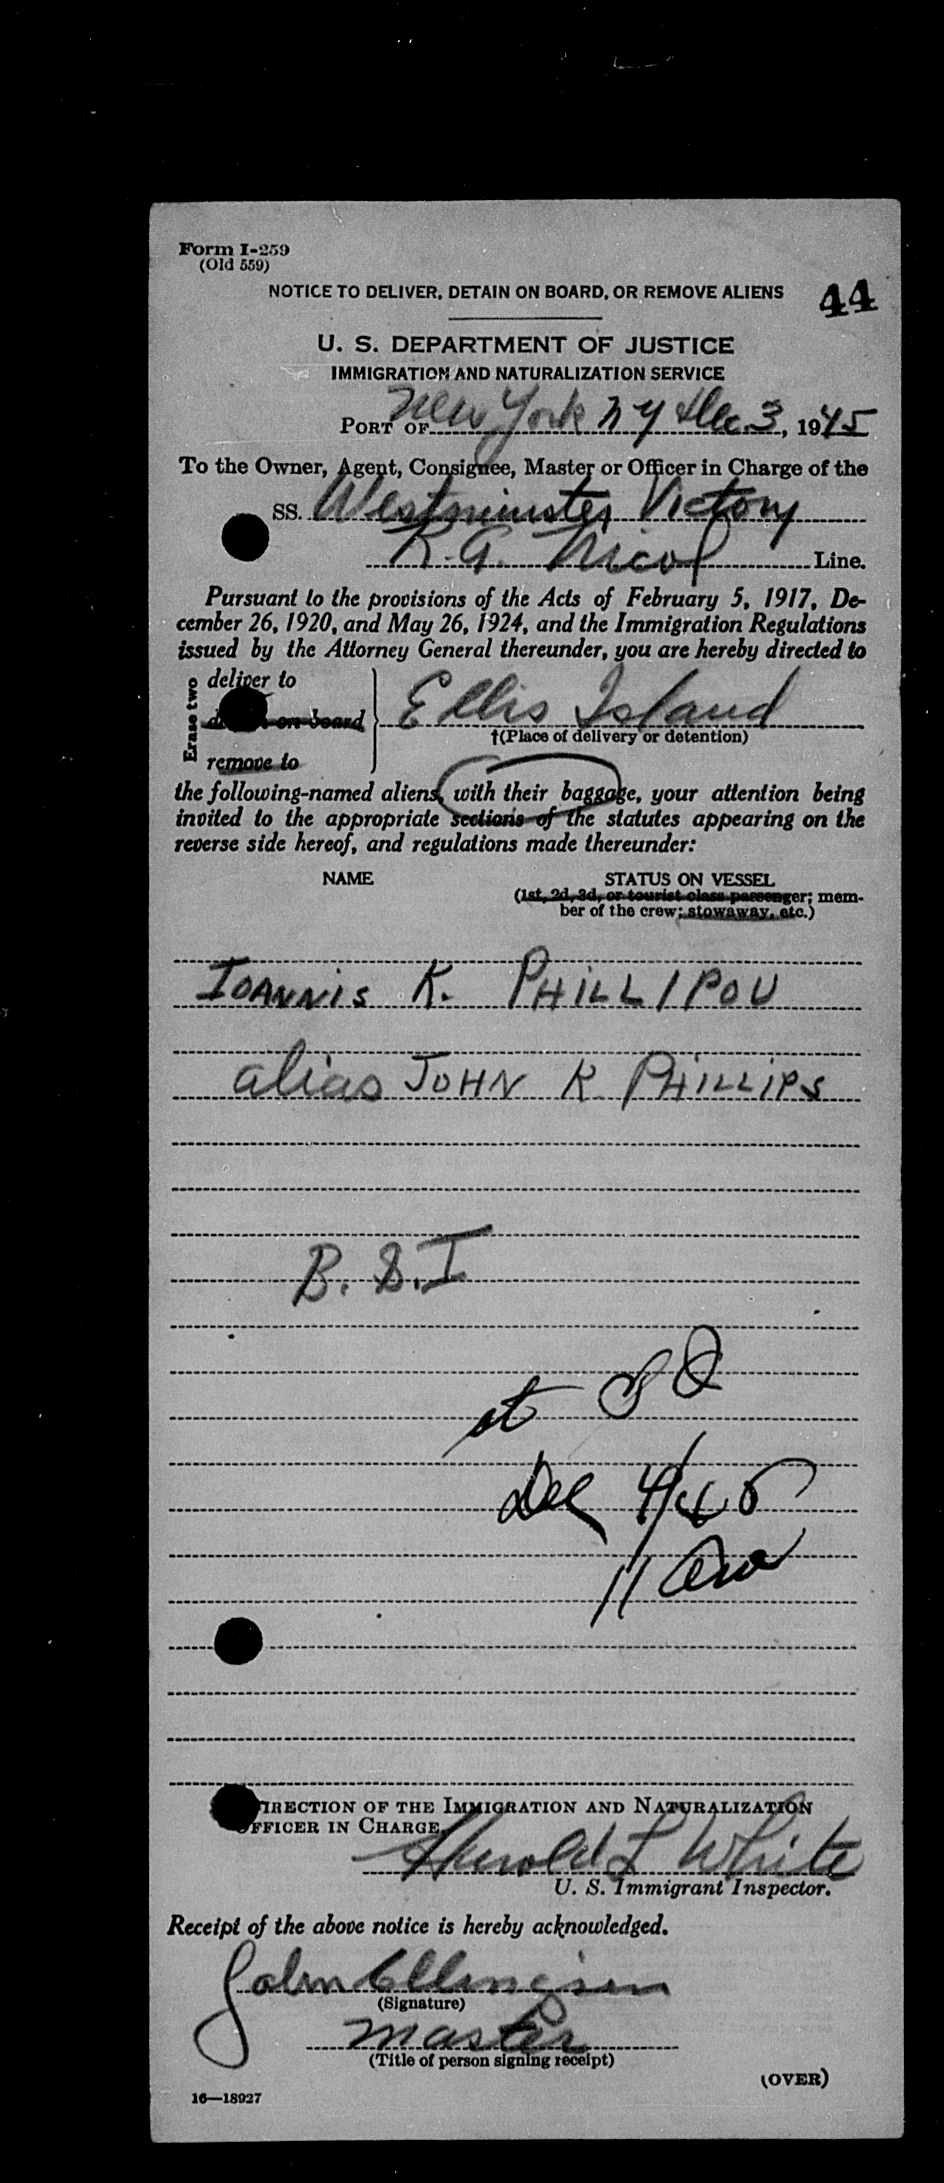 Form I-259
(Old 559)
NOTICE TO DELIVER, DETAIN ON BOARD, OR REMOVE ALIENS
44
U. S. DEPARTMENT OF JUSTICE
IMMIGRATION AND NATURALIZATION SERVICE
PORT OF New York NY Dec. 3, 1945
To the Owner, Agent, Consignee, Master or Officer in Charge of the
SS. Westminster Victory
K. G. Nicol Line.
Pursuant to the provisions of the Acts of February 5, 1917, De-
cember 26, 1920, and May 26, 1924, and the Immigration Regulations
issued by the Attorney General thereunder, you are hereby directed to
Erase two
deliver to
on board
Ellis Island
†(Place of delivery or detention)
remove to
the following-named aliens, with their baggage, your attention being
invited to the appropriate sections of the statutes appearing on the
reverse side hereof, and regulations made thereunder:
NAME
STATUS ON VESSEL
(1st, 2d, 3d, or tourist class passenger; mem-
ber of the crew; stowaway, etc.)
IOANNIS K. PHILLIPOU
alias JOHN K PHILLIPS
B. S. I
at
Dec 4/45
11 am
DIRECTION OF THE IMMIGRATION AND NATURALIZATION
OFFICER IN CHARGE.
Harold L White
U. S. Immigrant Inspector.
Receipt of the above notice is hereby acknowledged.
John Ellingsen
(Signature)
master
(Title of person signing receipt)
(OVER)
16—18927